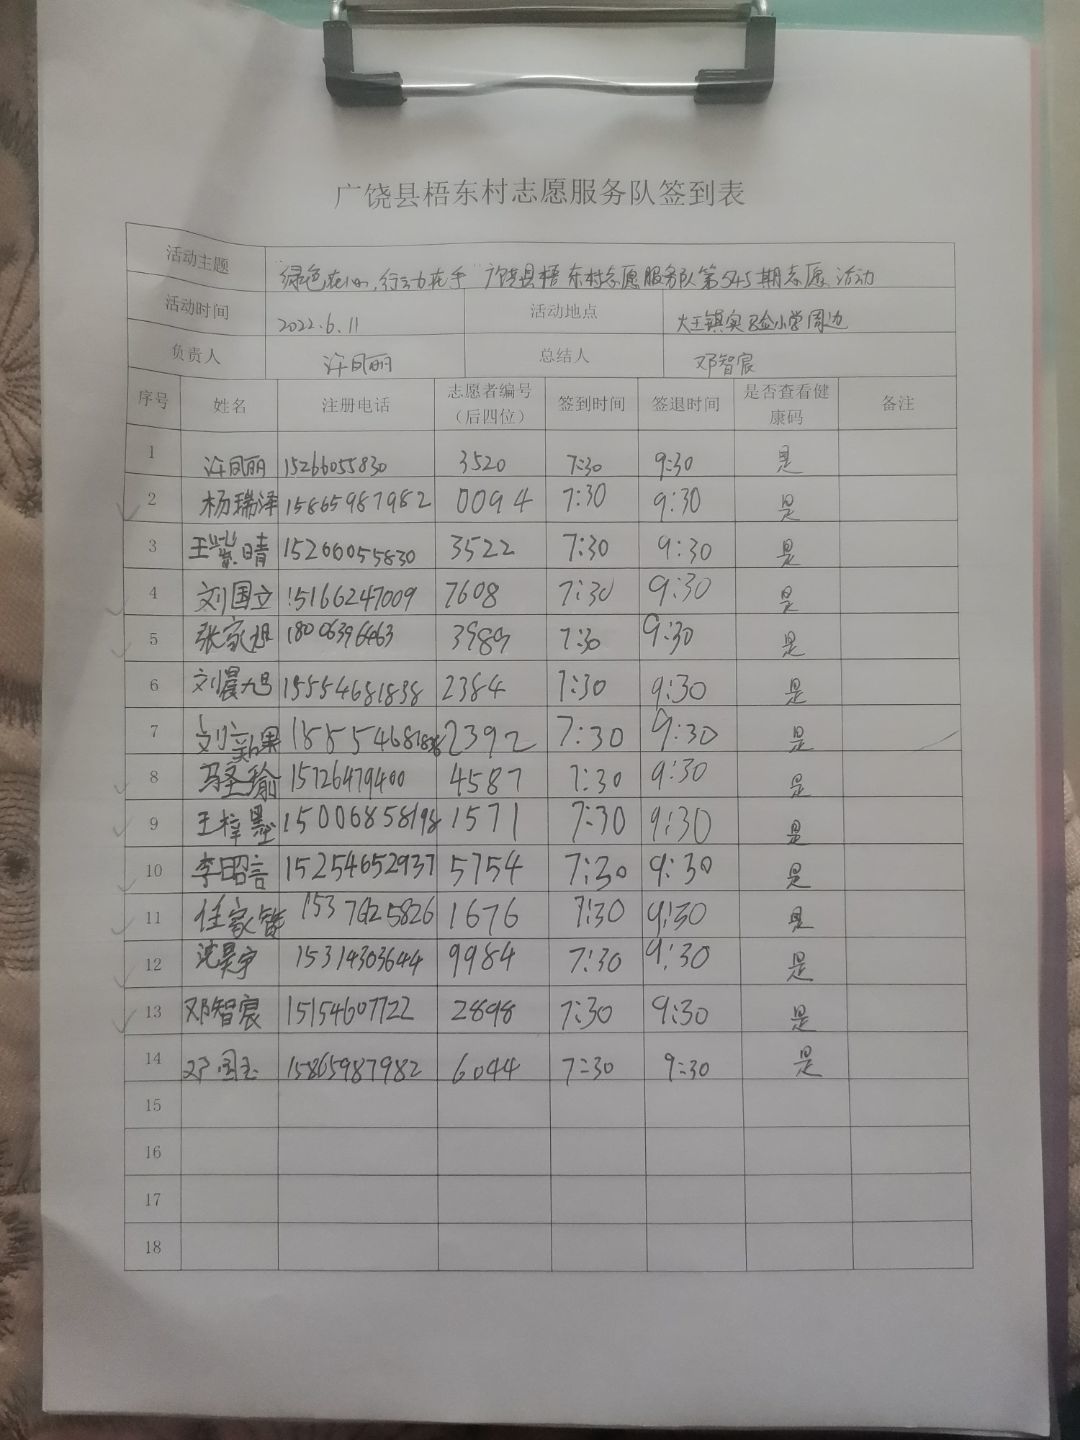 广饶县梧东村志愿服务队签到表
活动主题 绿色在心,行动在手 广饶县梧东村志愿服务队第545期志愿活动
活动时间 2022.6.11 活动地点 大王镇实验小学周边
负责人 许凤丽 总结人 邓智宸
序号 姓名 注册电话 志愿者编号（后四位） 签到时间 签退时间 是否查看健康码 备注
1 许凤丽 15266055830 3520 7:30 9:30 是
2 杨瑞泽 15865987982 0094 7:30 9:30 是
3 王紫晴 15266055830 3522 7:30 9:30 是
4 刘国立 15166247009 7608 7:30 9:30 是
5 张家旭 18006396463 3989 7:30 9:30 是
6 刘晨旭 15554681838 2384 7:30 9:30 是
7 2392 7:30 9:30 是
8 冯圣瑜 15726479400 4587 7:30 9:30 是
9 王梓墨 15006858198 1571 7:30 9:30 是
10 李昭言 15254652937 5754 7:30 9:30 是
11 任家 15376625826 1676 7:30 9:30 是
12 沈昊宇 15314303644 9984 7:30 9:30 是
13 邓智宸 15154607722 2898 7:30 9:30 是
14 邓国玉 15865987982 6044 7:30 9:30 是
15
16
17
18